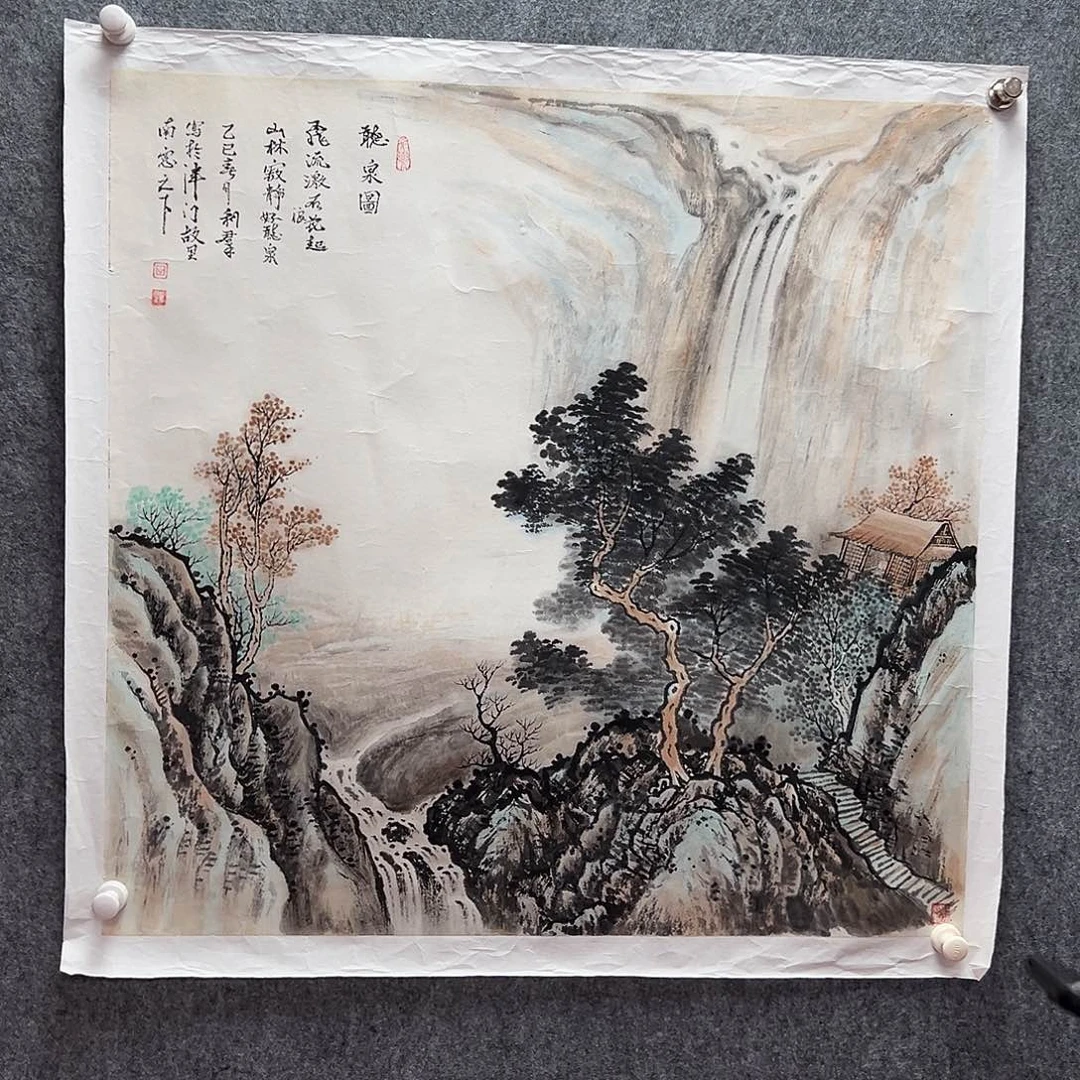 聽泉圖
飛流激石花起
浪
山林寂靜好聽泉
乙巳春月利群
寫於津沽故里
南窓之下